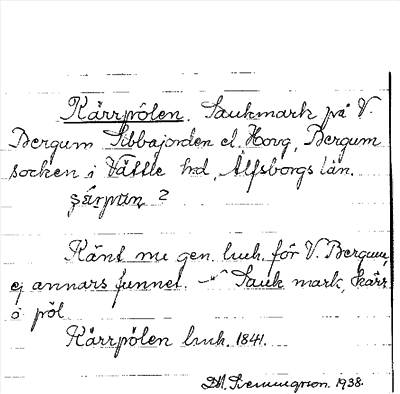 Kärrpölen. Sankmark på V.
Bergum Sibbajorden el. Hovg, Bergum
socken i Vättle hd, Älfsborgs län.
Känt nu gen. lmk. för V. Bergum,
ej annars funnet. Sank mark, kärr
o pöl.
Kärrpölen lmk. 1841.
1938.